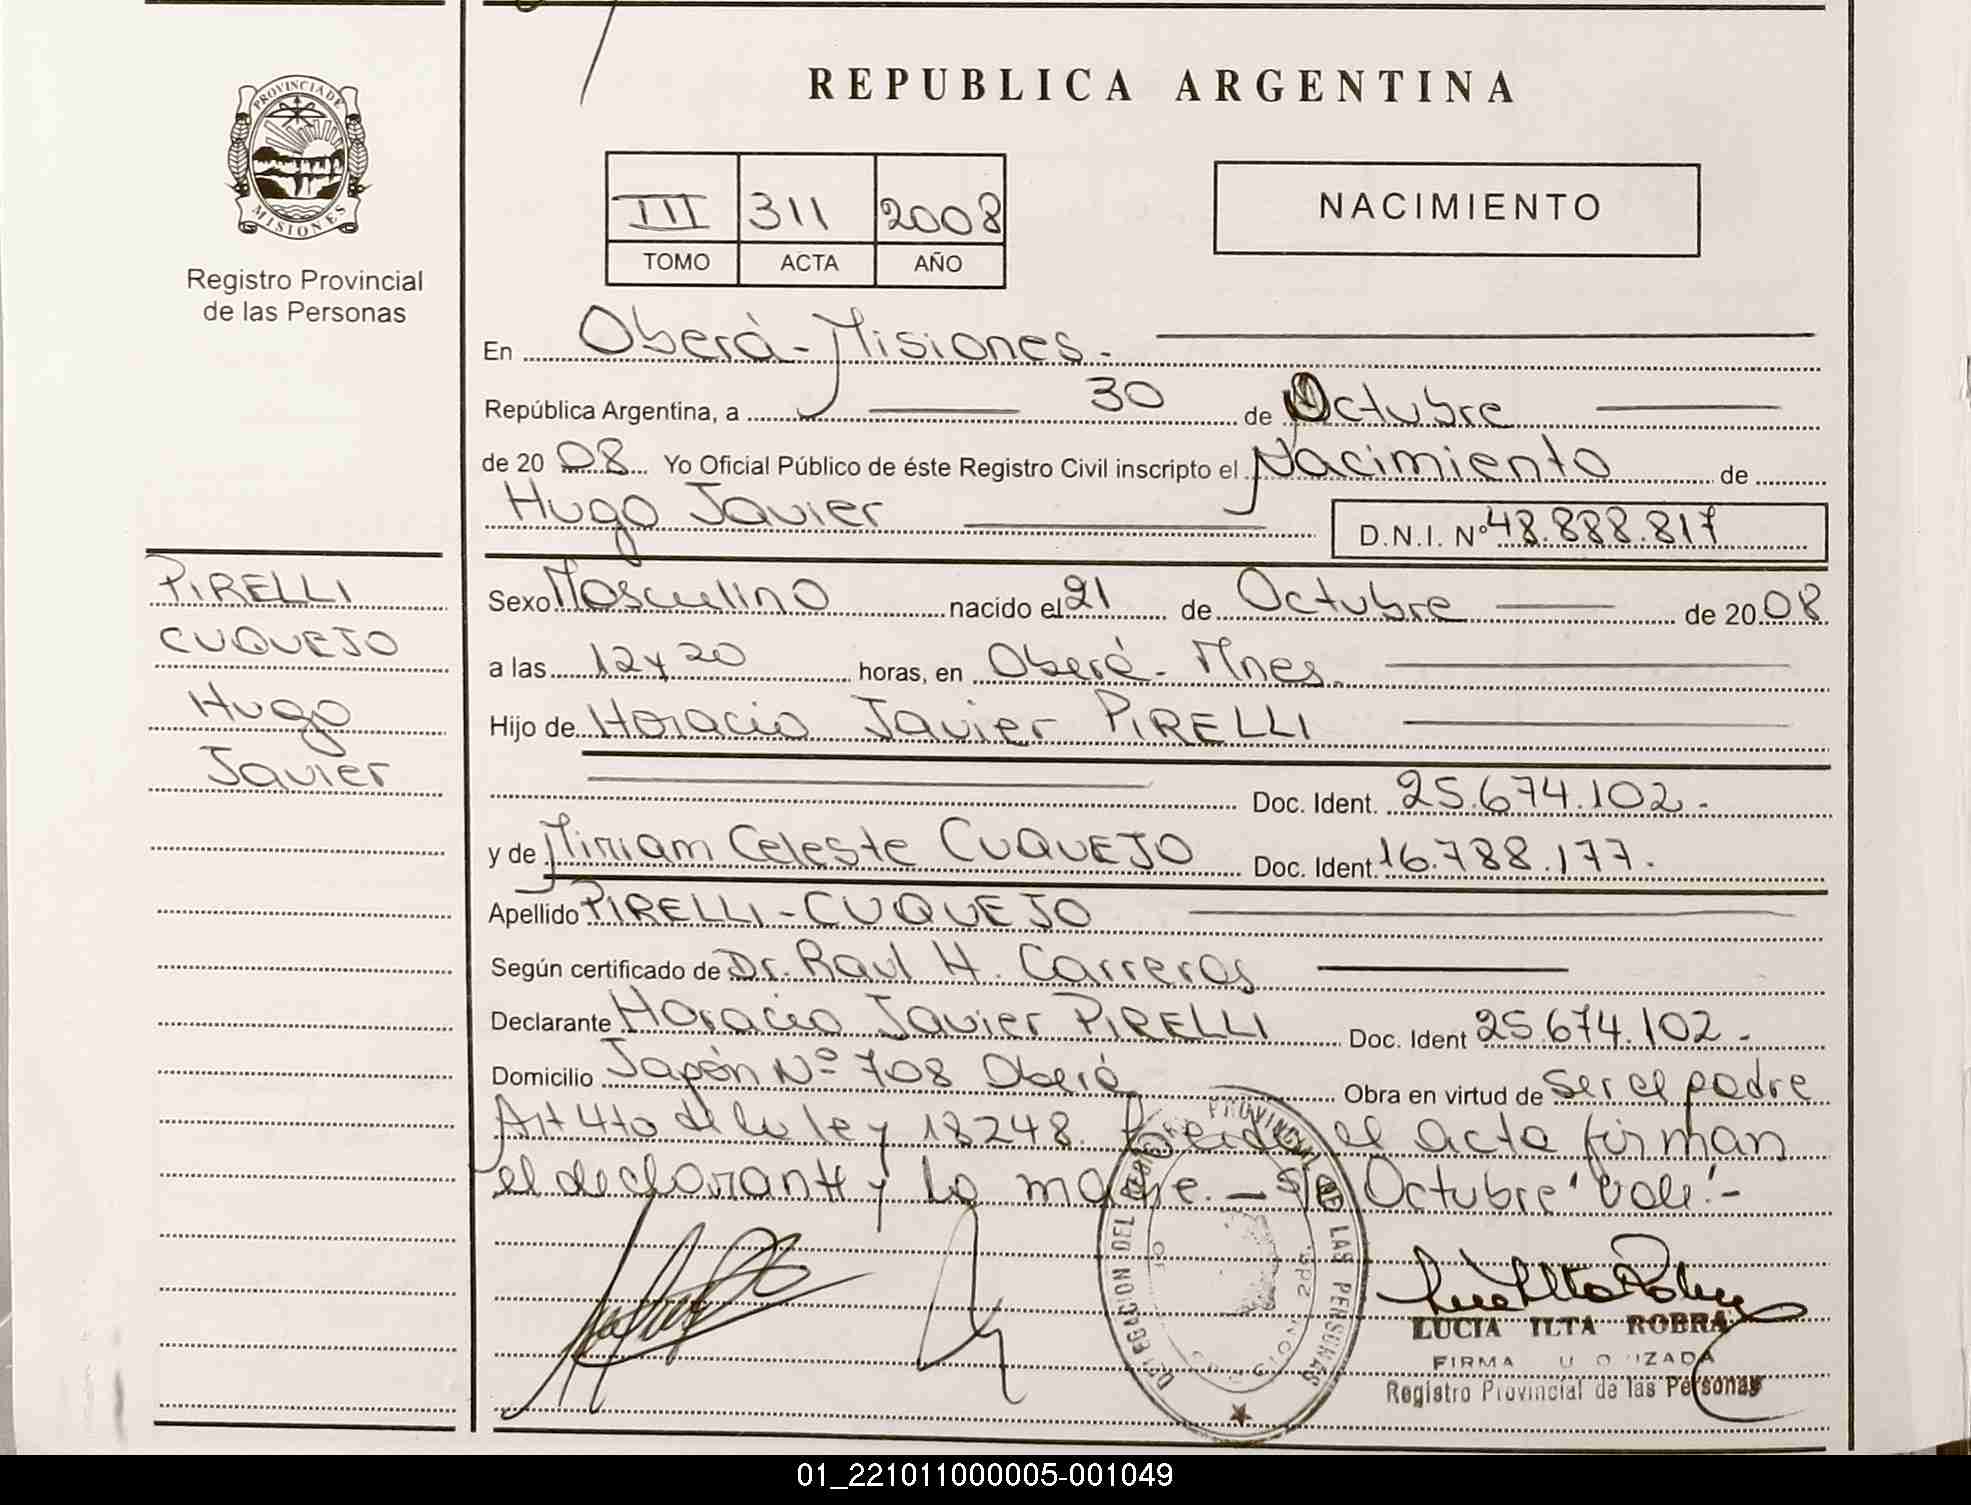 PROVINCIA DE
MISIONES
Registro Provincial
de las Personas
PIRELLI
CUQUEJO
Hugo
Javier
REPUBLICA ARGENTINA
III 311 2008
TOMO ACTA AÑO
NACIMIENTO
En Oberá - Misiones.-
República Argentina, a 30 de Octubre
de 2008 Yo Oficial Público de éste Registro Civil inscripto el Nacimiento de
Hugo Javier D.N.I. Nº 48.888.817
Sexo Masculino nacido el 21 de Octubre de 2008
a las 12 y 20 horas, en Oberá - Mnes.
Hijo de Horacio Javier PIRELLI
Doc. Ident. 25.674.102.-
y de Miriam Celeste CUQUEJO Doc. Ident. 16.788.177.-
Apellido PIRELLI - CUQUEJO
Según certificado de Dr. Raul H. Carreros
Declarante Horacio Javier PIRELLI Doc. Ident 25.674.102.-
Domicilio Japón Nº 708 Oberá Obra en virtud de ser el padre
Art 4to de la ley 18248. el acta firman
el declarante y la madre.- Octubre "vale".-
DELEGACION DEL REGISTRO PROVINCIAL DE LAS PERSONAS
LUCIA ILTA ROBRA
FIRMA
Registro Provincial de las Personas
01_221011000005-001049